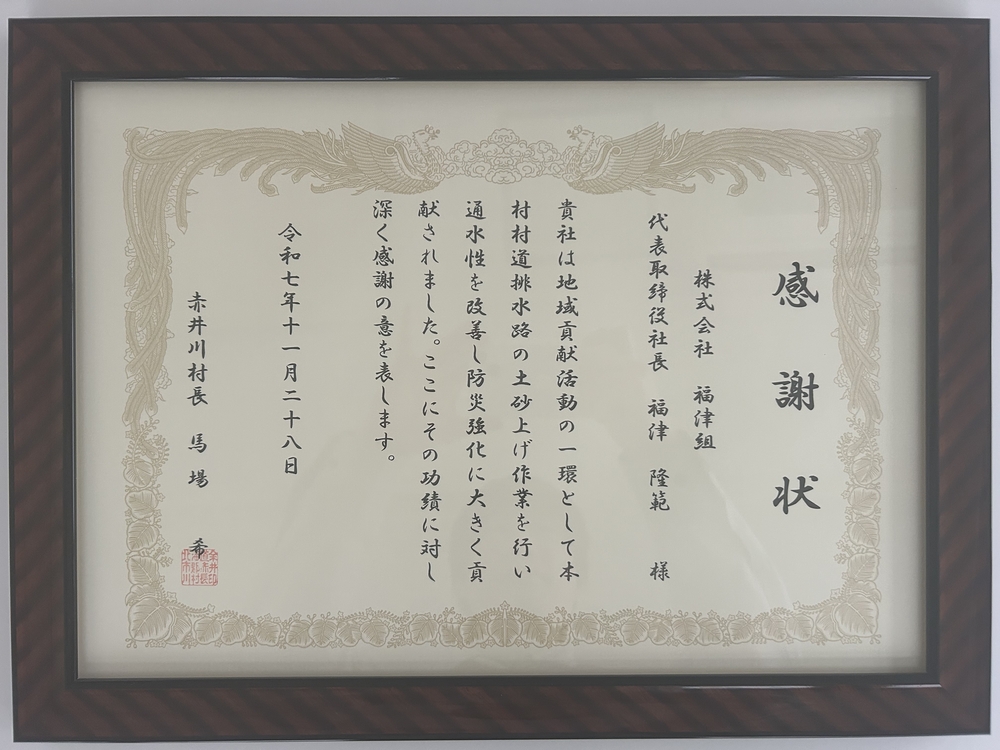 感謝状
株式会社 福津組
代表取締役社長 福津 隆範 様
貴社は地域貢献活動の一環として本
村村道排水路の土砂上げ作業を行い
通水性を改善し防災強化に大きく貢
献されました。ここにその功績に対し
深く感謝の意を表します。
令和七年十一月二十八日
赤井川村長 馬場 希